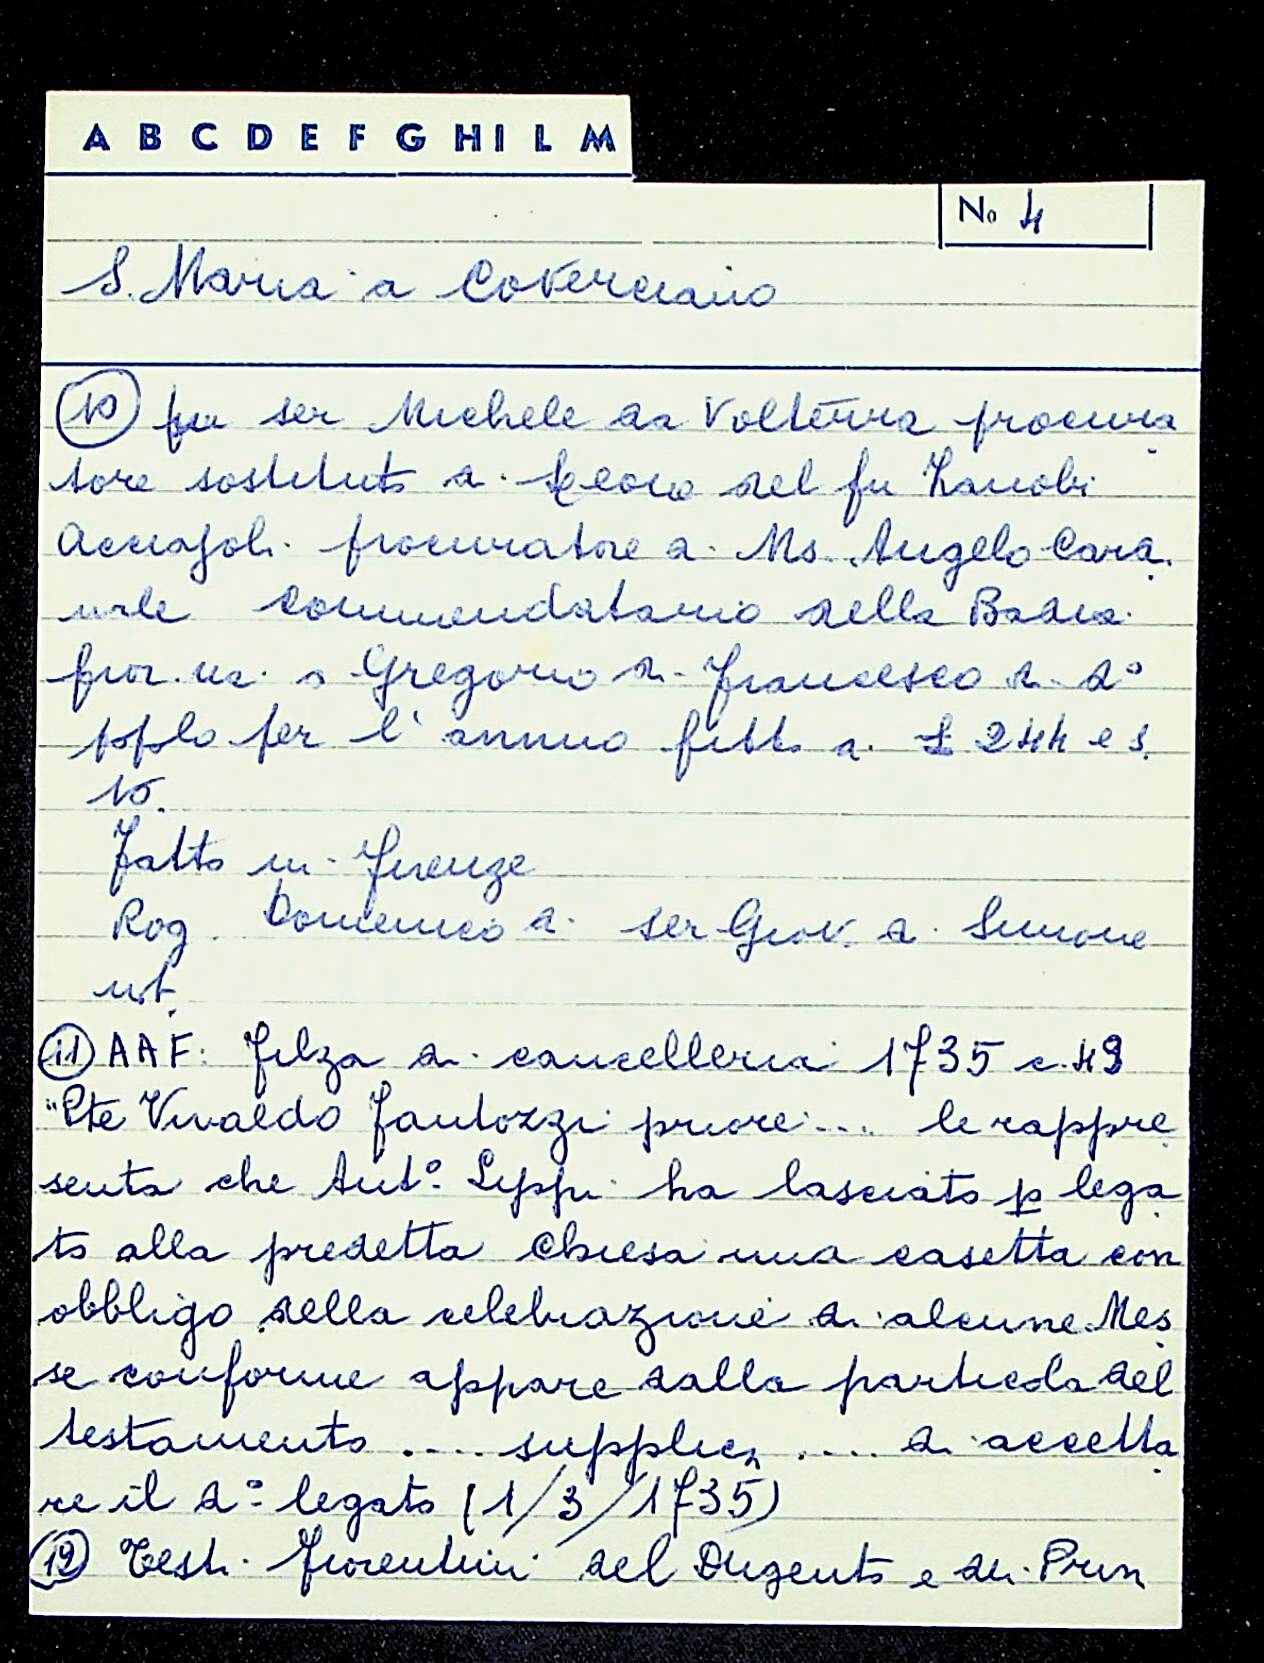 A B C D E F G H I L M
No 4
S. Maria a Coverciano
10 fu ser Michele da Volterra procura
tore sostituto di del fu Zanobi
Acciajoli procuratore di Ms. Angelo Cardi
nale Commendatario della Badia
fior.na a Gregorio di Francesco di d°
popolo per l'annuo fitto di £ 244 e s.
10.
Fatto in Firenze
Rog. Domenico di ser Giov. di Simone
not.
11 AAF: Filza di cancelleria 1735 c. 49
"Pte Vivaldo Fantozzi priore .... le rappre
senta che Ant° Lippi ha lasciato p lega
to alla predetta Chiesa una casetta con
obbligo della celebrazione di alcune Mes
se conforme appare dalla particola del
testamento .... supplica .... di accetta
re il d° legato (1/3/1735)
12 Testi Fiorentini del Dugento e dei Prim